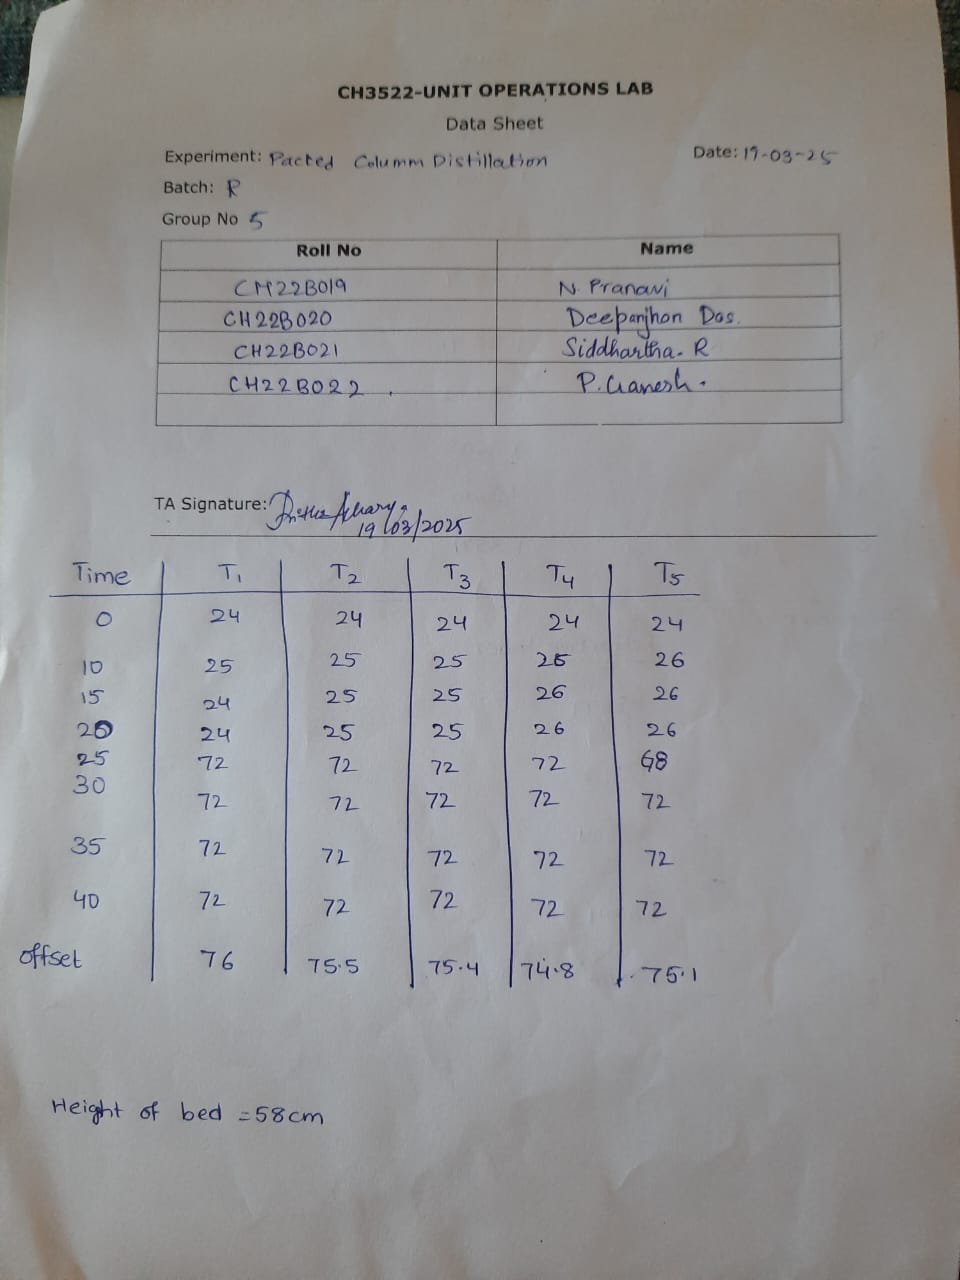 CH3522-UNIT OPERATIONS LAB
Data Sheet
Experiment: Packed Column Distillation Date: 19-03-25
Batch: R
Group No 5
Roll No Name
CH22B019 N. Pranavi
CH22B020 Deepanjhan Das.
CH22B021 Siddhartha. R
CH22B022. P. Ganesh.
TA Signature:
19/03/2025
Time T1 T2 T3 T4 T5
0 24 24 24 24 24
10 25 25 25 26 26
15 24 25 25 26 26
20 24 25 25 26 26
25 72 72 72 72 68
30 72 72 72 72 72
35 72 72 72 72 72
40 72 72 72 72 72
offset 76 75.5 75.4 74.8 75.1
Height of bed = 58cm